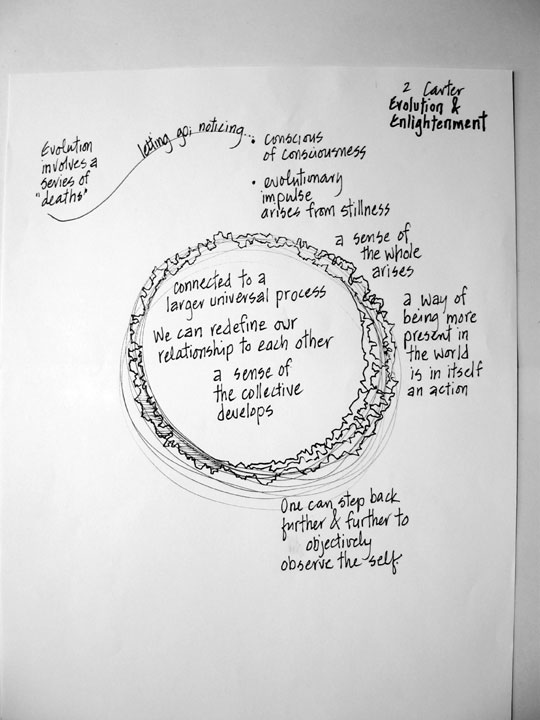 2 Carter
Evolution &
Enlightenment
Evolution
involves a
series of
"deaths"
letting go; noticing...
• conscious
of consciousness
• evolutionary
impulse
arises from stillness
a sense of
the whole
arises
connected to a
larger universal process
We can redefine our
relationship to each other
a sense of
the collective
develops
a way of
being more
present in
the world
is in itself
an action
One can step back
further & further to
objectively
observe the self.